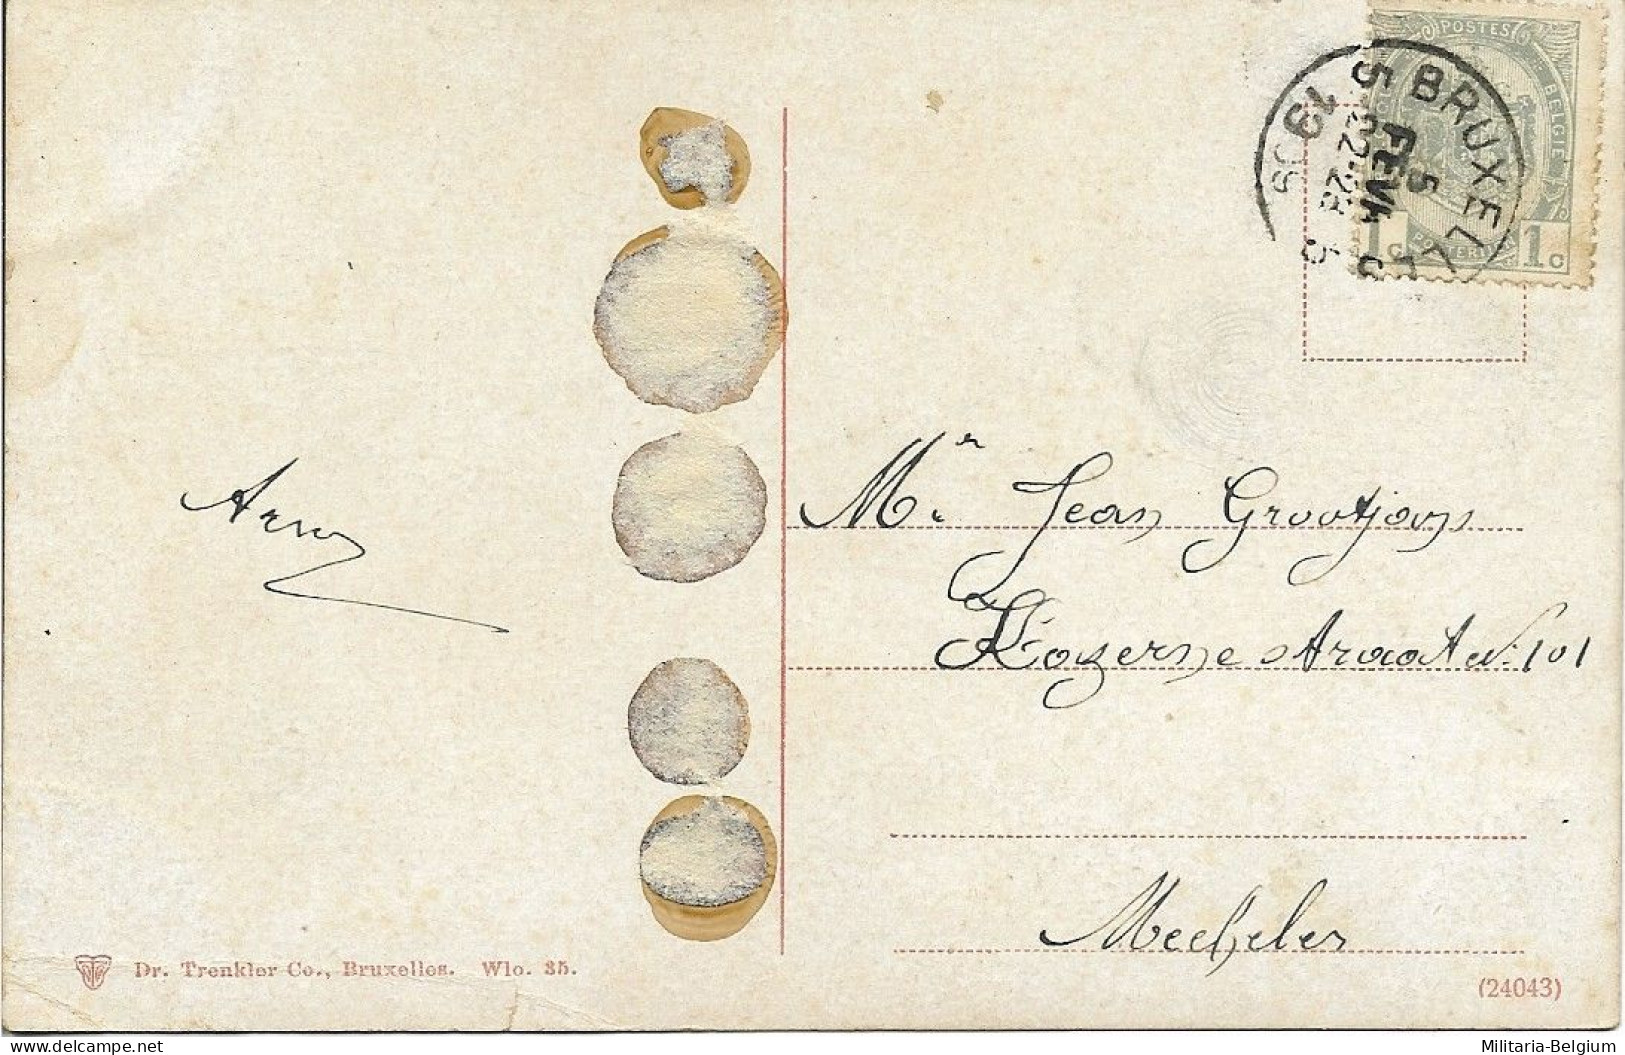 POSTES
BELGIQUE
1c 1c
BRUXELLES 5
5
FEVR
22-23
1909
Mr. Jean Grootjans
Kazerne straat N: 101
Mechelen
Dr. Trenkler Co., Bruxelles. Wlo. 35.
(24043)
Militaria-Belgium